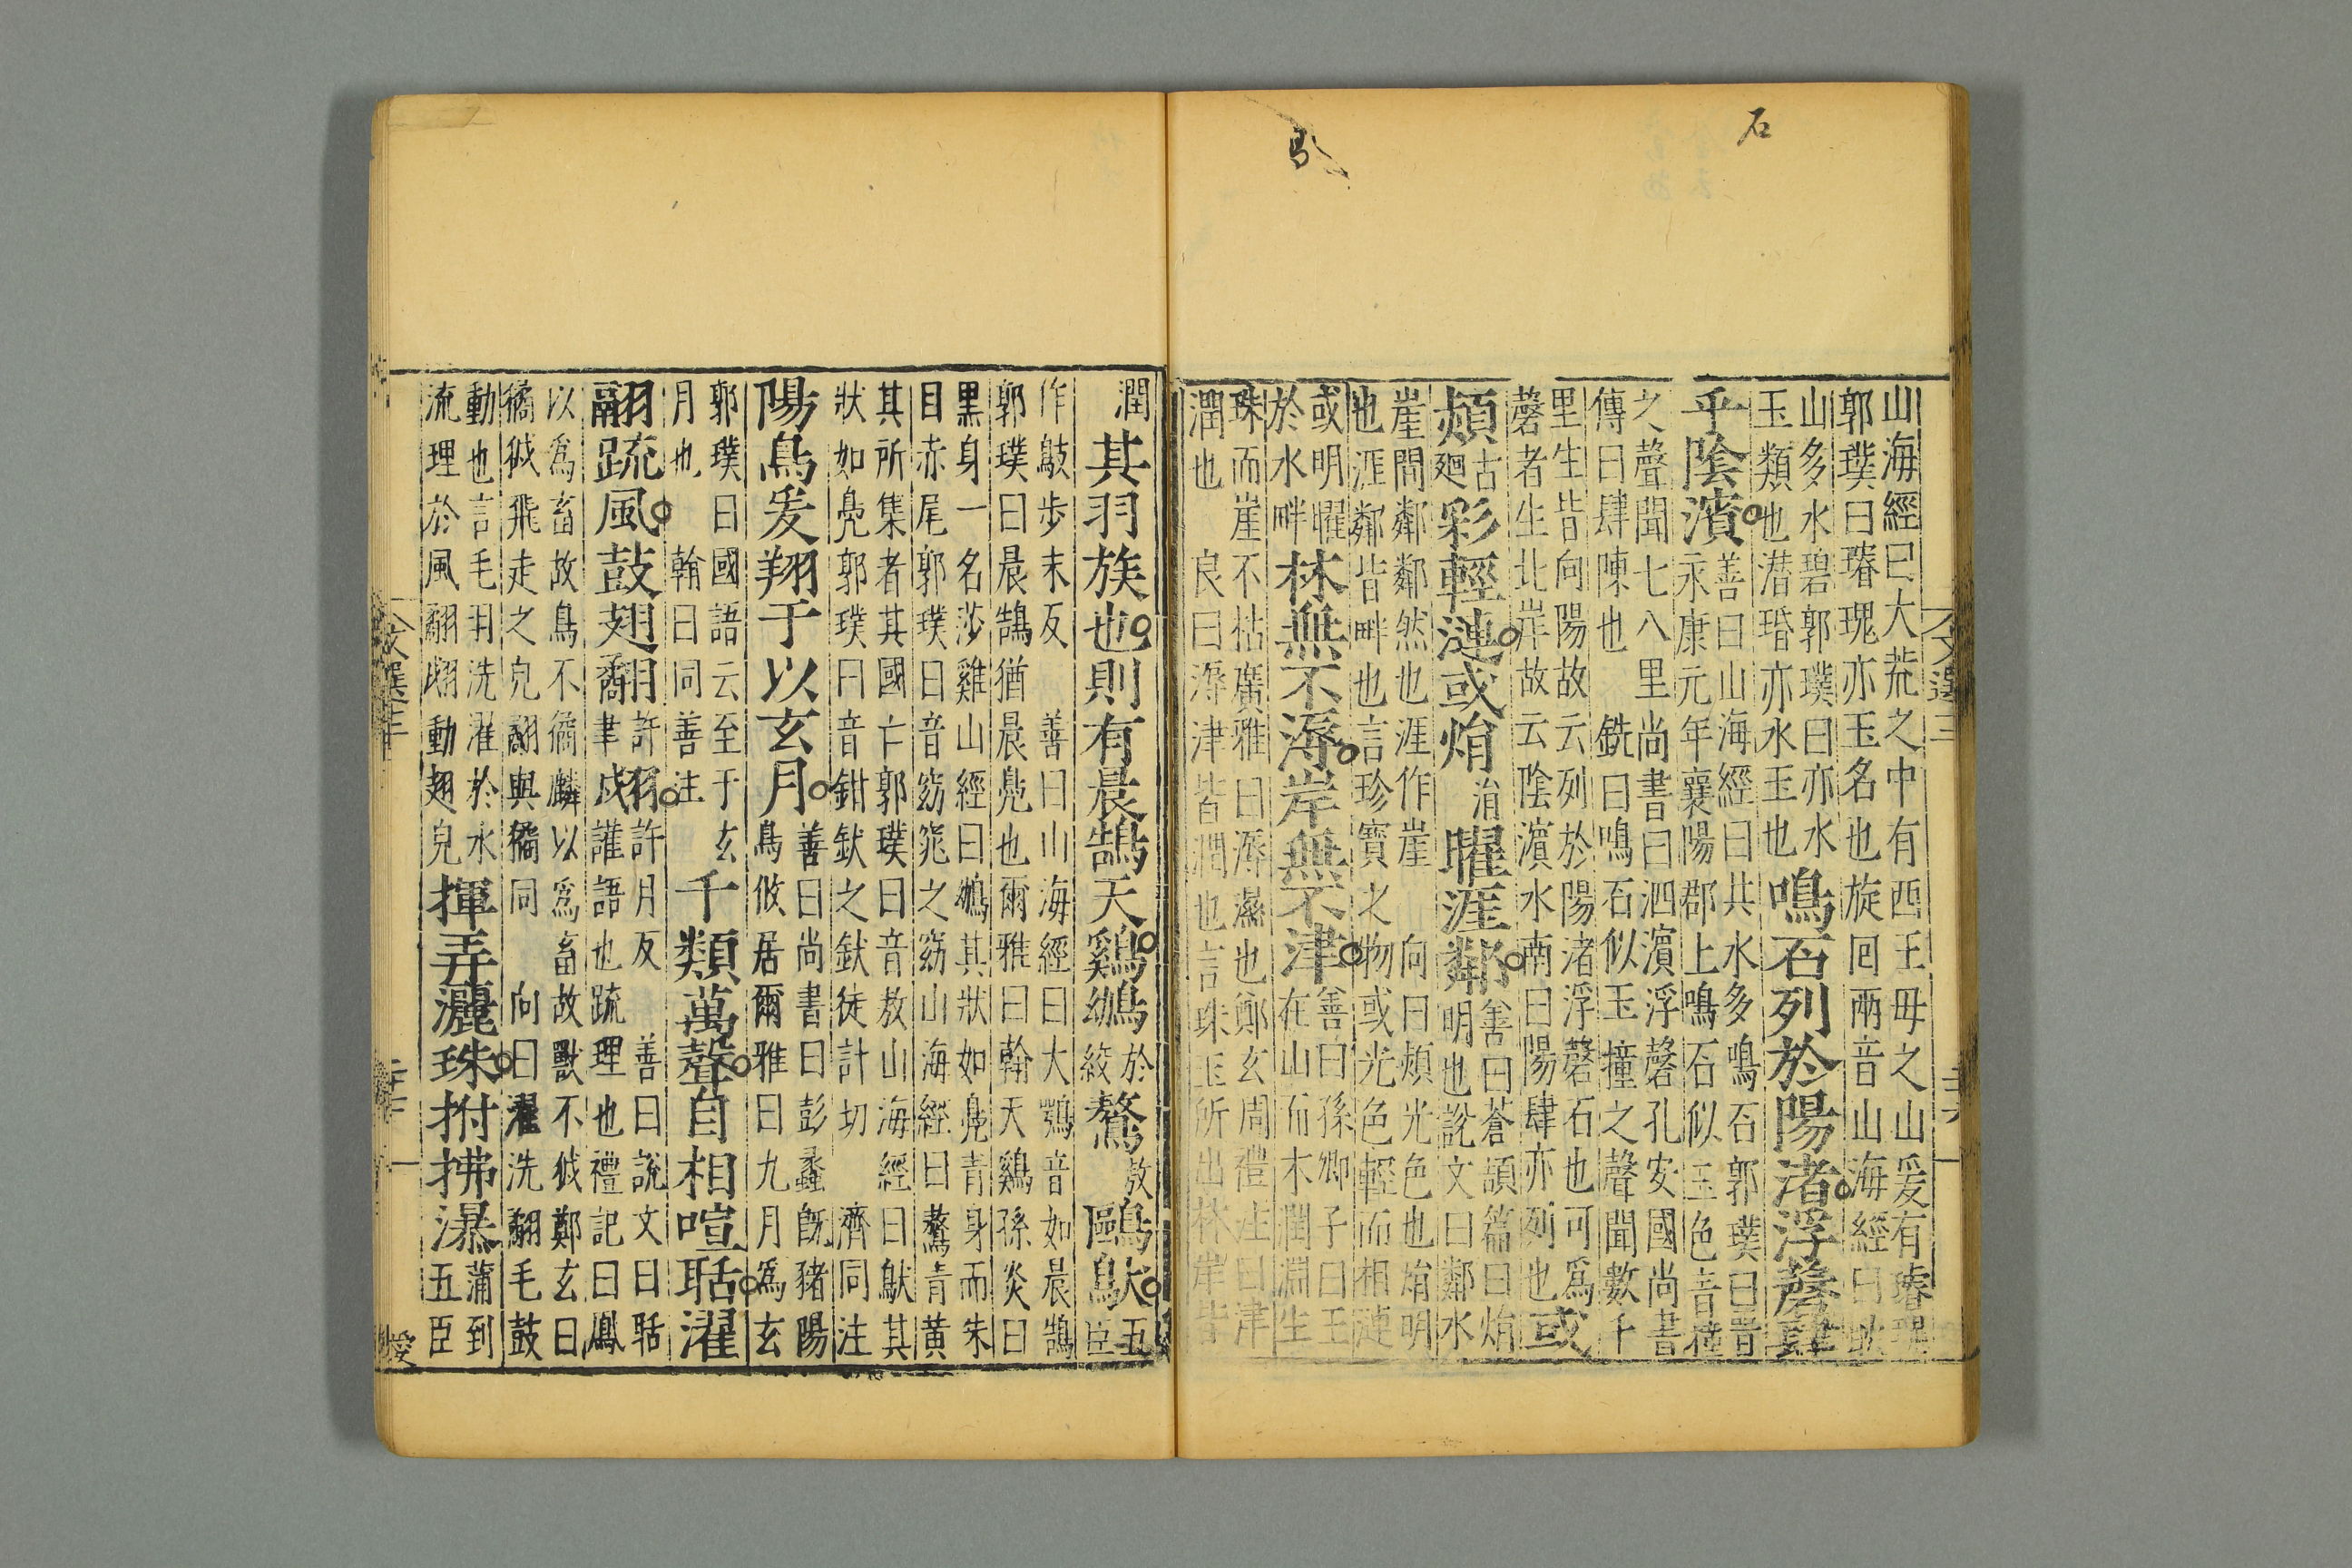 石
山海經曰大荒之中有西王母之山爰有璿瑰
郭璞曰璿瑰亦玉名也旋回兩音山海經曰耿
山多水碧郭璞曰亦水
玉類也潜㻉亦水玉也
鳴石列於陽渚浮磬肆
乎陰濱
善曰山海經曰共水多鳴石郭璞曰晉
永康元年襄陽郡上鳴石似玉色青撞
之聲聞七八里尚書曰泗濱浮磬孔安國尚書
傳曰肆陳也 銑曰鳴石似玉撞之聲聞數千
里生皆向陽故云列於陽渚浮磬石也可爲
磬者生北岸故云陰濱水南曰陽肆亦列也
或
熲古廻彩輕漣或焆涓曜涯鄰
善曰蒼頡篇曰焆
明也說文曰鄰水
崖間鄰鄰然也涯作崖 向曰熲光色也焆明
也涯鄰皆畔也言珍寶之物或光色輕而相漣
或明曜
於水畔
林無不溽岸無不津
善曰孫卿子曰玉
在山而木潤淵生
珠而崖不枯廣雅曰溽濕也鄭玄周禮注曰津
潤也 良曰溽津皆潤也言珠玉所出林岸皆
潤
其羽族也則有晨鵠天鷄鴢於絞鷔敖鷗䲦五臣
作䳁步末反 善曰山海經曰大鶚音如晨鵠
郭璞曰晨鵠猶晨鳧也爾雅曰鶾天鷄孫炎曰
黑身一名莎雞山經曰鴢其狀如鳧青身而朱
目赤尾郭璞曰音窈窕之窈山海經曰鷔青黄
其所集者其國亡郭璞曰音敖山海經曰䲦其
狀如鳧郭璞曰音鉗釱之釱徒計切 濟同注
陽鳥爰翔于以玄月
善曰尚書曰彭蠡旣豬陽
鳥攸居爾雅曰九月爲玄
郭璞曰國語云至于玄
月也 翰曰同善注
千類萬聲自相喧聒濯
翮疏風鼓翅翻許聿翃許月反
善曰說文曰聒
讙語也疏理也禮記曰鳳
以爲畜故鳥不獝麟以爲畜故獸不狘鄭玄曰
獝狘飛走之皃翻與獝同 向曰濯洗翮毛鼓
動也言毛羽洗濯於水
流理於風翻翃動翅皃
揮弄灑珠拊拂瀑
蒲到
五臣